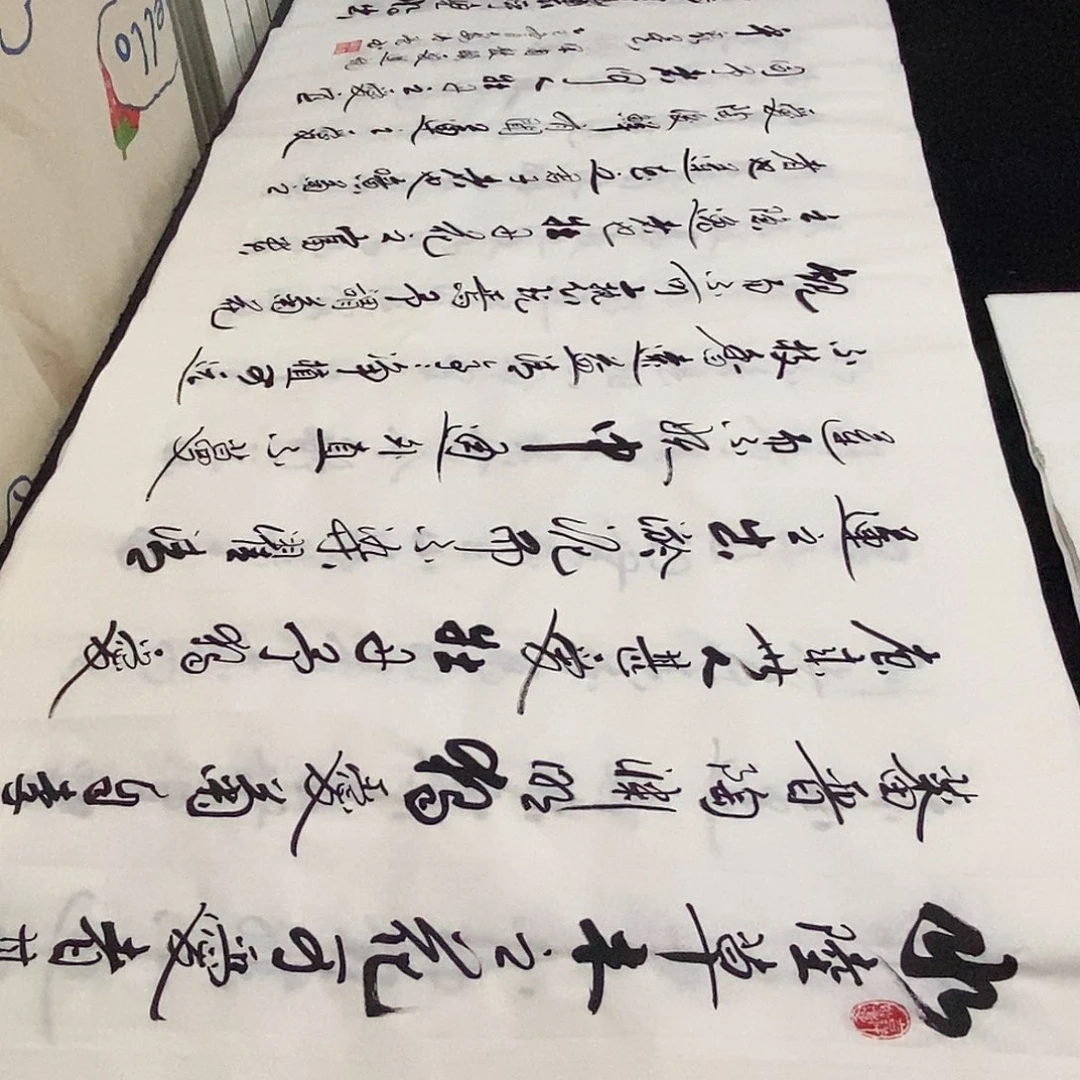 水陸草木之花可愛者甚
蕃晉陶淵明獨愛菊自李
唐來世人甚愛牡丹予獨愛
蓮之出淤泥而不染濯清
漣而不妖中通外直不蔓
不枝香遠益清亭亭淨植可遠
觀而不可褻玩焉予謂菊花
之隱逸者也牡丹花之富貴
者也蓮花之君子者也噫菊之
愛陶後鮮有聞蓮之愛
同予者何人牡丹之愛宜
乎眾矣
ello